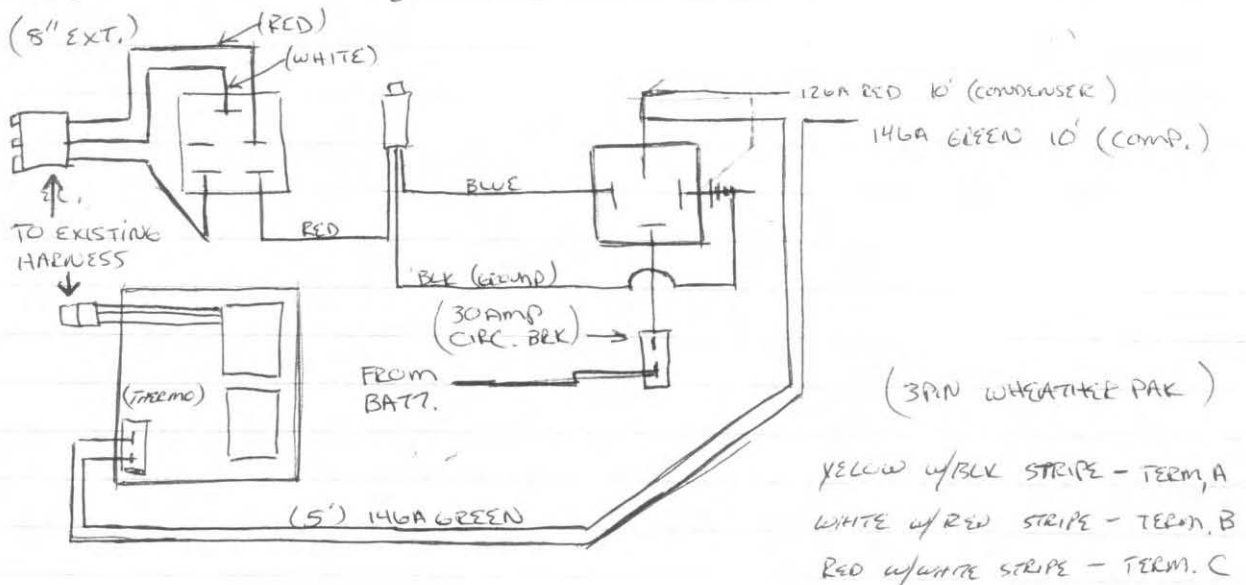 (8" EXT.)
(RED)
(WHITE)
12GA RED 10' (CONDENSER)
14GA GREEN 10' (COMP.)
BLUE
RED
TO EXISTING
HARNESS
BLK (GROUND)
(30 AMP
CIRC. BRK)
FROM
BATT.
(THERMO)
(5') 14GA GREEN
(3PIN WHEATHER PAK)
YELOW W/BLK STRIPE - TERM, A
WHITE W/RED STRIPE - TERM. B
RED W/WHITE STRIPE - TERM. C